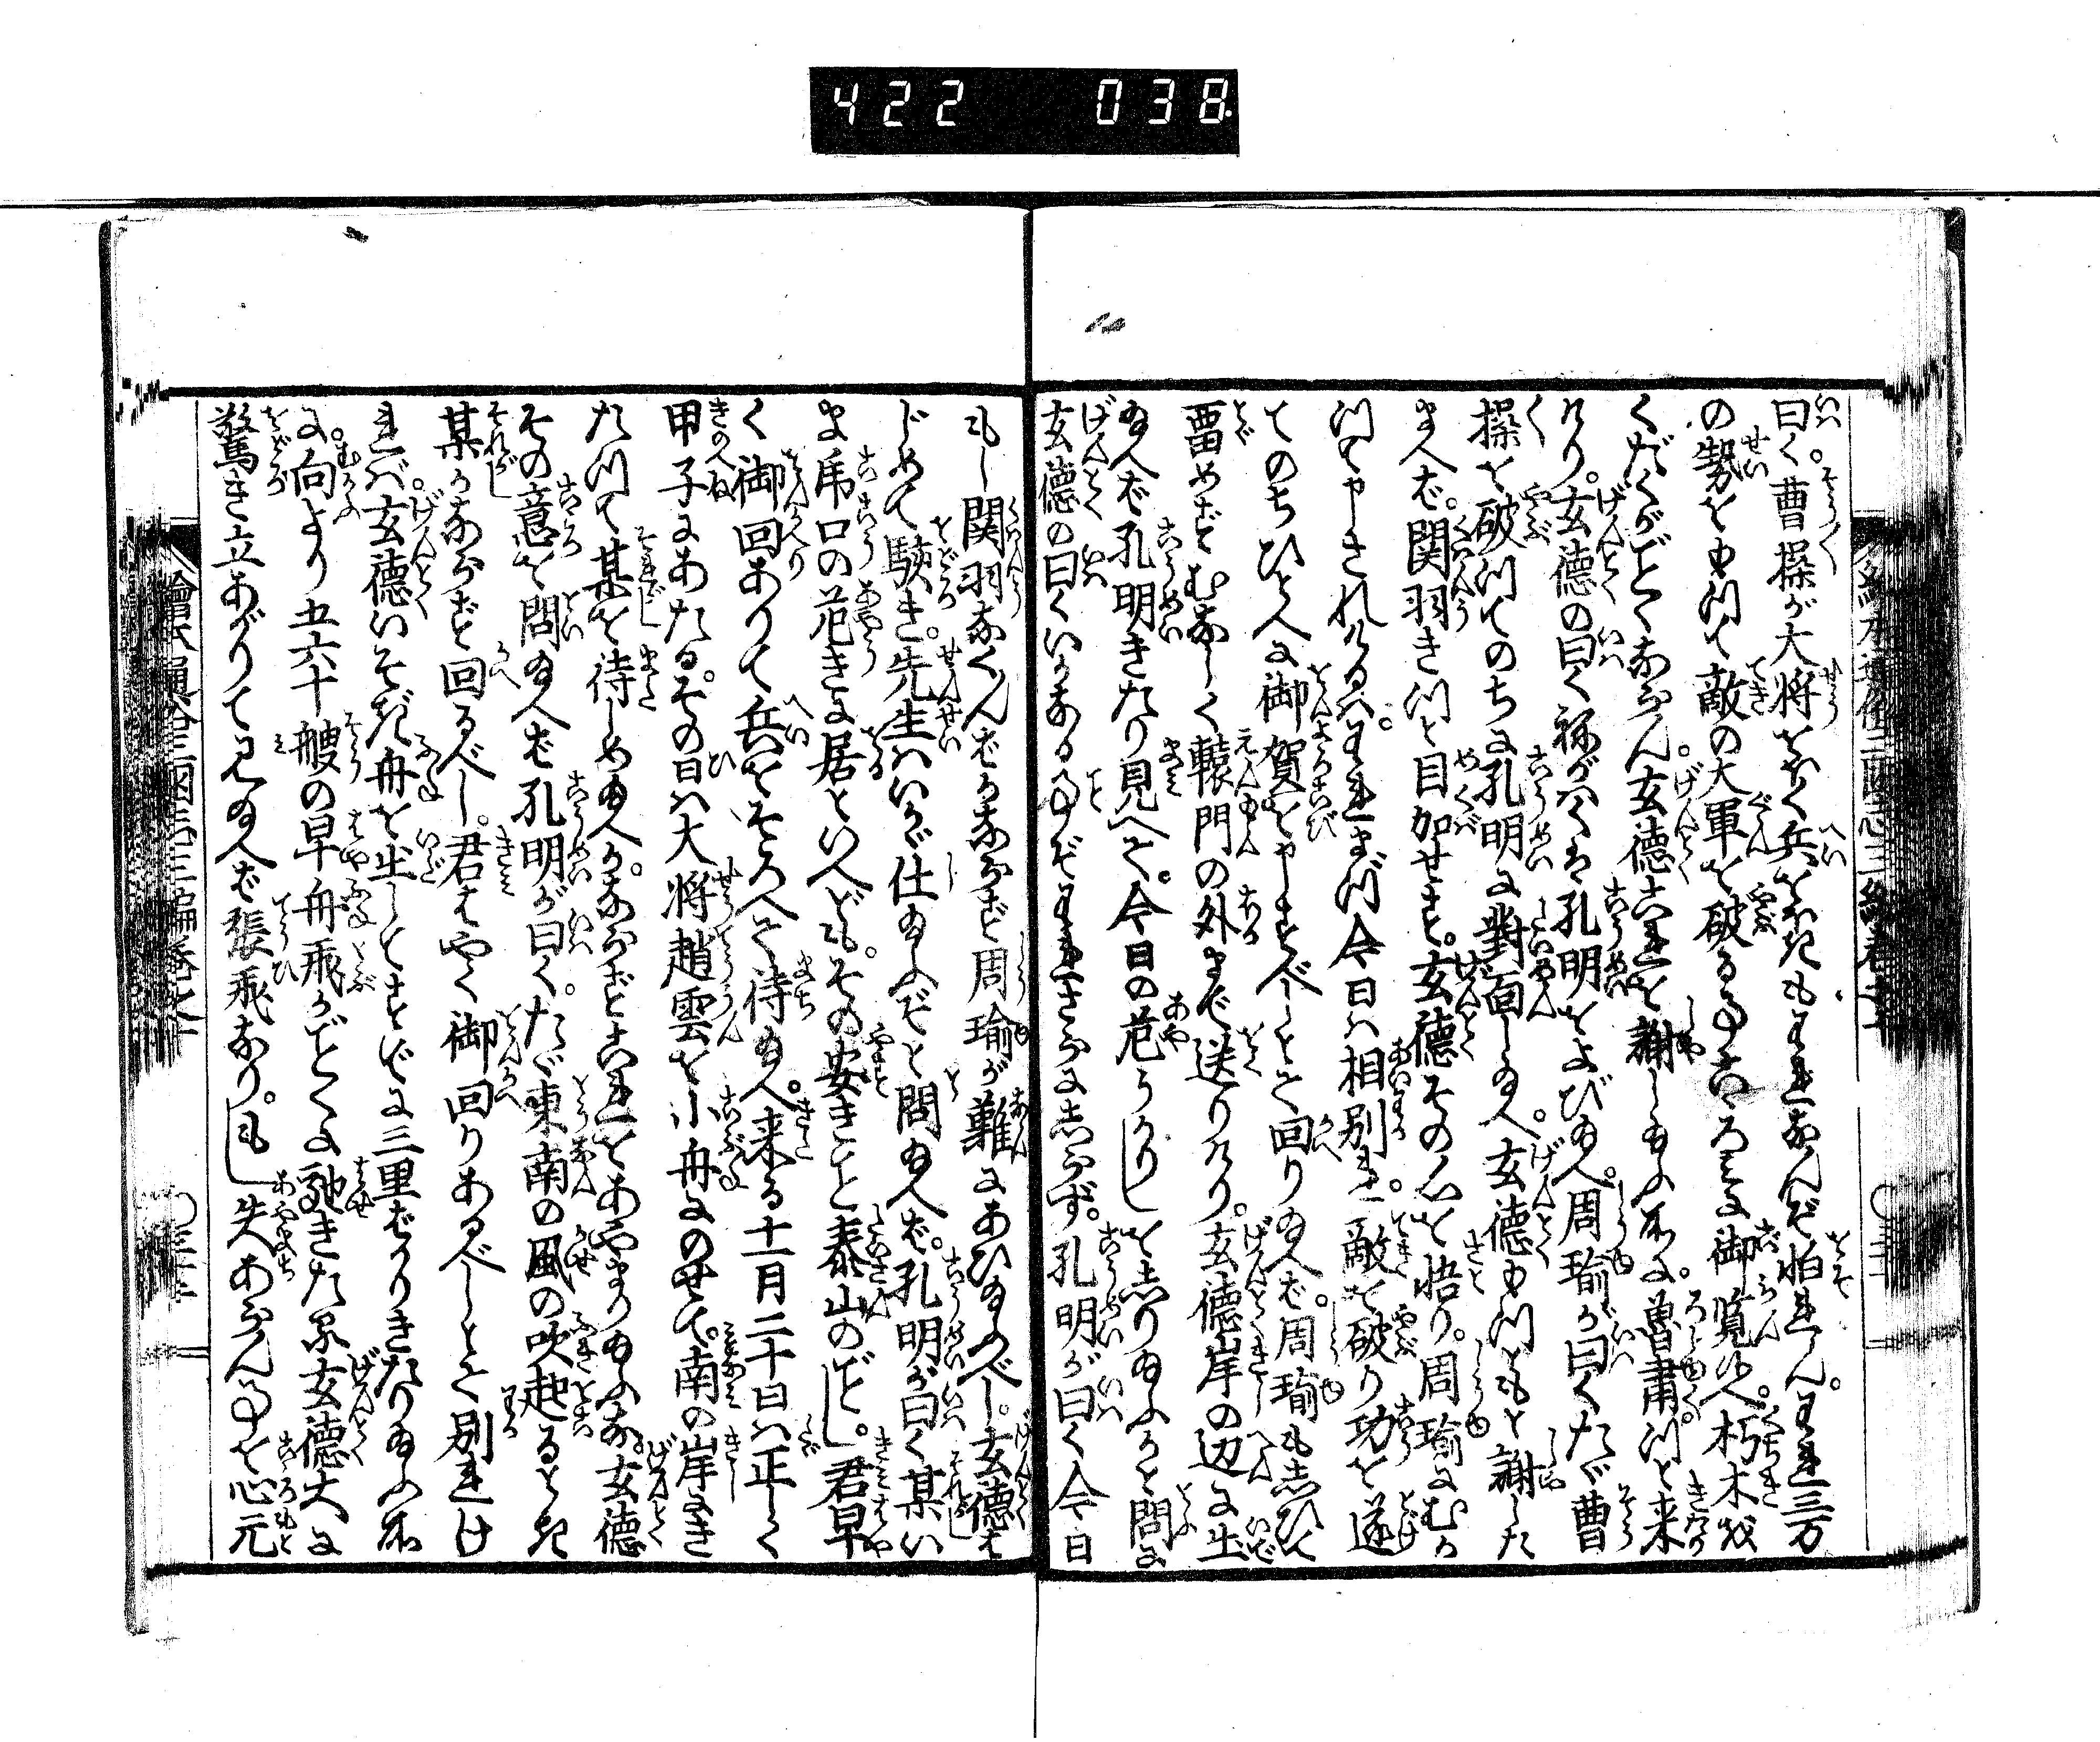 422 038
曰く。曹操が大将をほく兵をほきもわれなんぞ怕れん。われ三万
の勢をもつて敵の大軍を破る事こゝろみに御覧候へ。朽木を
くだくがごとくならん。玄徳これを謝し給ふ所に。魯粛つと来
けり。玄徳の曰くねがはくは孔明をよび給へ。周瑜が曰くたゞ曹
操を破つてのちに孔明に對面し給へ。玄徳もつともと謝した
まへば。関羽きつと目加せす。玄徳その心を悟り。周瑜にむか
つてやされけるは。われまづ今日は相別れ。敵を破り功を遂
てのちひとへに御賀をやすべしとて回り給へば。周瑜も志ひて
畱めず。むなしく轅門の外まで送りけり。玄徳岸の辺に出
給へば孔明きたり見へて。今日の危うかりしを志り給ふかと問に
玄徳の曰くいかなる事ぞわれさらに志らず。孔明が曰く今日
もし関羽なくんばかならず周瑜が難にあひ給ふべし。玄徳は
じめて駭き。先生はいかゞ仕給ふぞと問給へば。孔明が曰く某い
ま虎口の危きに居といへども。その安きこと泰山のごとし。君早
く御回ありて兵をそろへて待給へ。来る十一月二十日は正しく
甲子にあたる。その日は大将趙雲を小舟にのせて。南の岸にき
たつて某を待しめ給へ。かならずこれをあやまり給ふな。玄徳
その意を問給へば孔明が曰く。たゞ東南の風の吹起るとき
某かならず回るべし。君はやく御回りあるべしとて別れけ
れば。玄徳いそぎ舟を出しとすでに三里ばかりきたり給ふ所
に。向より五六十艘の早舟飛がごとくに馳きたる玄徳大に
驚き立あがりて見給へば張飛なり。もし失あらん事を心元